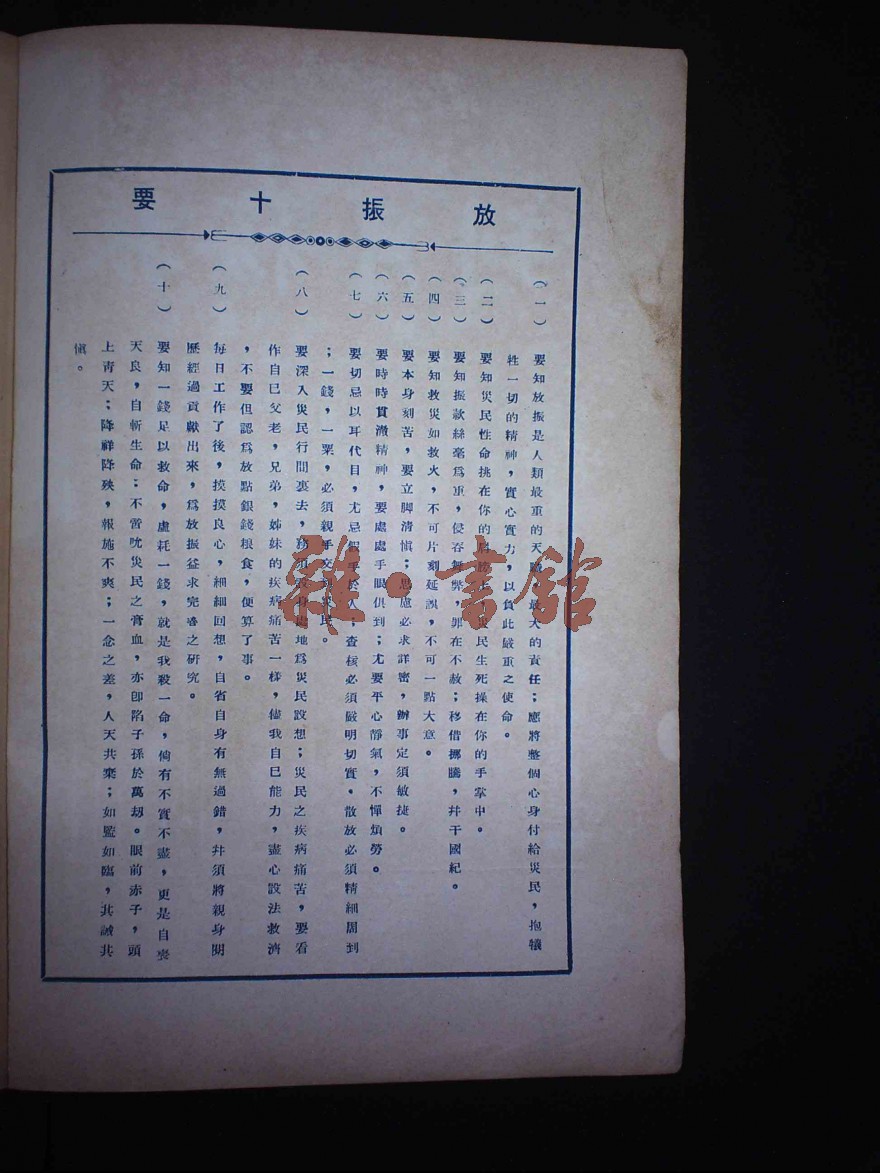 放振十要
(一) 要知放振是人類最重的天職,最大的責任;應將整個心身付給災民,抱犧
牲一切的精神,實心實力,以負此嚴重之使命。
(二) 要知災民性命挑在你的肩膀上,災民生死操在你的手掌中。
(三) 要知振款絲毫爲重,侵吞舞弊,罪在不赦;移借挪騰,幷干國紀。
(四) 要知救災如救火,不可片刻延誤,不可一點大意。
(五) 要本身刻苦,要立脚清愼;思慮必求詳密,辦事定須敏捷。
(六) 要時時貫澈精神,要處處手眼俱到;尤要平心靜氣,不憚煩勞。
(七) 要切忌以耳代目,尤忌假手於人;查核必須嚴明切實,散放必須精細周到
;一錢,一粟,必須親手交到災民。
(八) 要深入災民行間裏去,務須設身處地爲災民設想;災民之疾病痛苦,要看
作自已父老,兄弟,姊妹的疾病痛苦一樣,儘我自已能力,盡心設法救濟
,不要但認爲放點銀錢粮食,便算了事。
(九) 每日工作了後,摸摸良心,細細回想,自省自身有無過錯,幷須將親身閱
歷經過貢獻出來,爲放振益求完善之研究。
(十) 要知一錢足以救命,虛耗一錢,就是我殺一命,倘有不實不盡,更是自喪
天良,自斬生命;不啻吮災民之膏血,亦卽陷子孫於萬刼。眼前赤子,頭
上靑天;降祥降殃,報施不爽;一念之差,人天共棄;如監如臨,其誡其
愼。
雜·書館